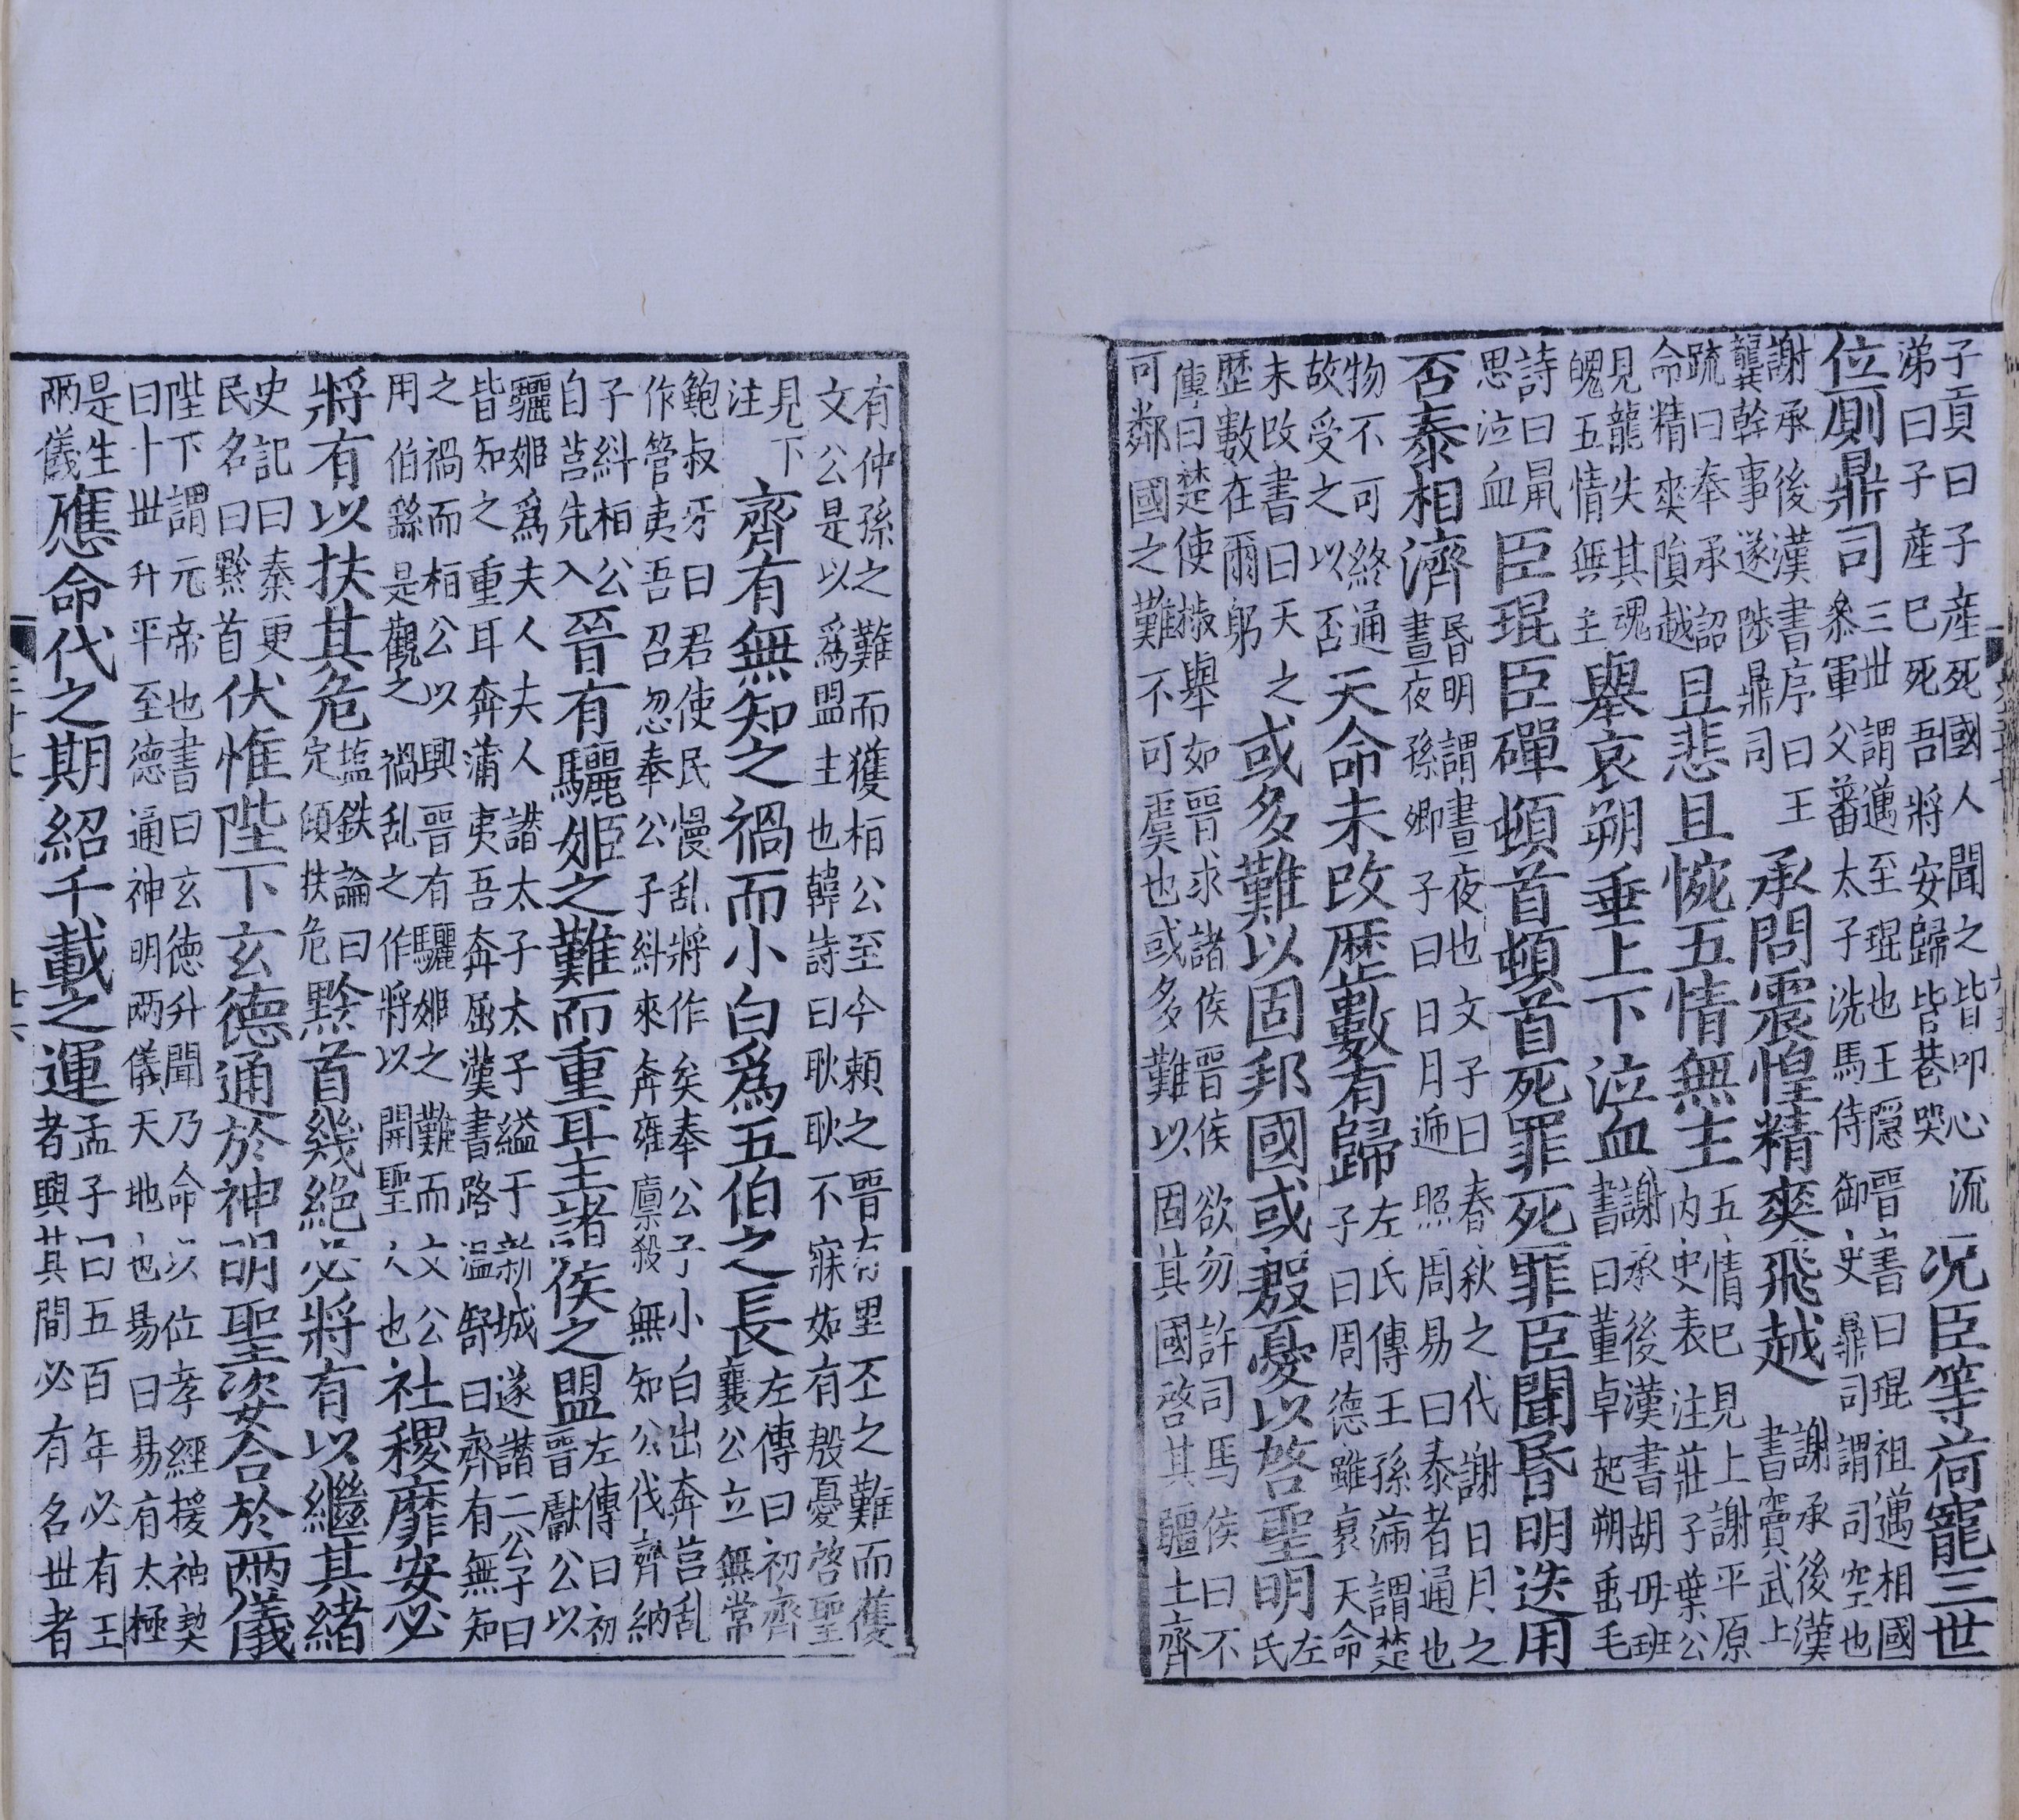 子貢曰子産死國人聞之皆叩心流
涕曰子産巳死吾將安歸皆巷哭
况臣等荷寵三世
位厠鼎司
三世謂邁至琨也王隱晋書曰琨祖邁相國
叅軍父蕃太子洗馬侍御史鼎司謂司空也
謝承後漢書序曰王
龔幹事遂陟鼎司
承問震惶精爽飛越
謝承後漢
書竇武上
䟽曰奉承詔
命精爽隕越
且悲且惋五情無主
五情巳見上謝平原
内史表注莊子葉公
見龍失其魂
魄五情無主
舉哀朔垂上下泣血
謝承後漢書胡毋班
書曰董卓起朔垂毛
詩曰鼠
思泣血
臣琨臣磾頓首頓首死罪死罪臣聞昏明迭用
否泰相濟
昏明謂晝夜也文子曰春秋之代謝日月之
晝夜孫卿子曰日月逓照周易曰泰者通也
物不可終通
故受之以否
天命未改歴數有歸
左氏傳王孫滿謂楚
子曰周德雖衰天命
未改書曰天之
歴數在爾躬
或多難以固邦國或殷憂以啓聖明
左
氏
傳曰楚使椒舉如晋求諸侯晋侯欲勿許司馬侯曰不
可鄰國之難不可虞也或多難以固其國啓其疆土齊
有仲孫之難而獲栢公至今頼之晋有里丕之難而獲
文公是以爲盟主也韓詩曰耿耿不寐如有殷憂啓聖
見下
注
齊有無知之禍而小白爲五伯之長
左傳曰初齊
襄公立無常
鮑叔牙曰君使民慢乱將作矣奉公子小白出奔莒乱
作管夷吾召忽奉公子糾來奔雍廪殺無知公伐齊納
子糾栢公
自莒先入
晉有驪姬之難而重耳主諸侯之盟
左傳曰初
晋獻公以
驪姬爲夫人夫人譛太子太子縊于新城遂譛二公子曰
皆知之重耳奔蒲夷吾奔屈漢書路温舒曰齊有無知
之禍而栢公以興晋有驪姬之難而文公
用伯繇是觀之禍乱之作將以開聖人也
社稷靡安必
將有以扶其危
塩鉄論曰
定傾扶危
黔首幾絶必將有以繼其緒
史記曰秦更
民名曰黔首
伏惟陛下玄德通於神明聖姿合於两儀
陛下謂元帝也書曰玄德升聞乃命以位孝經援神契
曰十世升平至德通神明两儀天地也易曰易有太極
是生
两儀
應命代之期紹千載之運
孟子曰五百年必有王
者興其間必有名世者